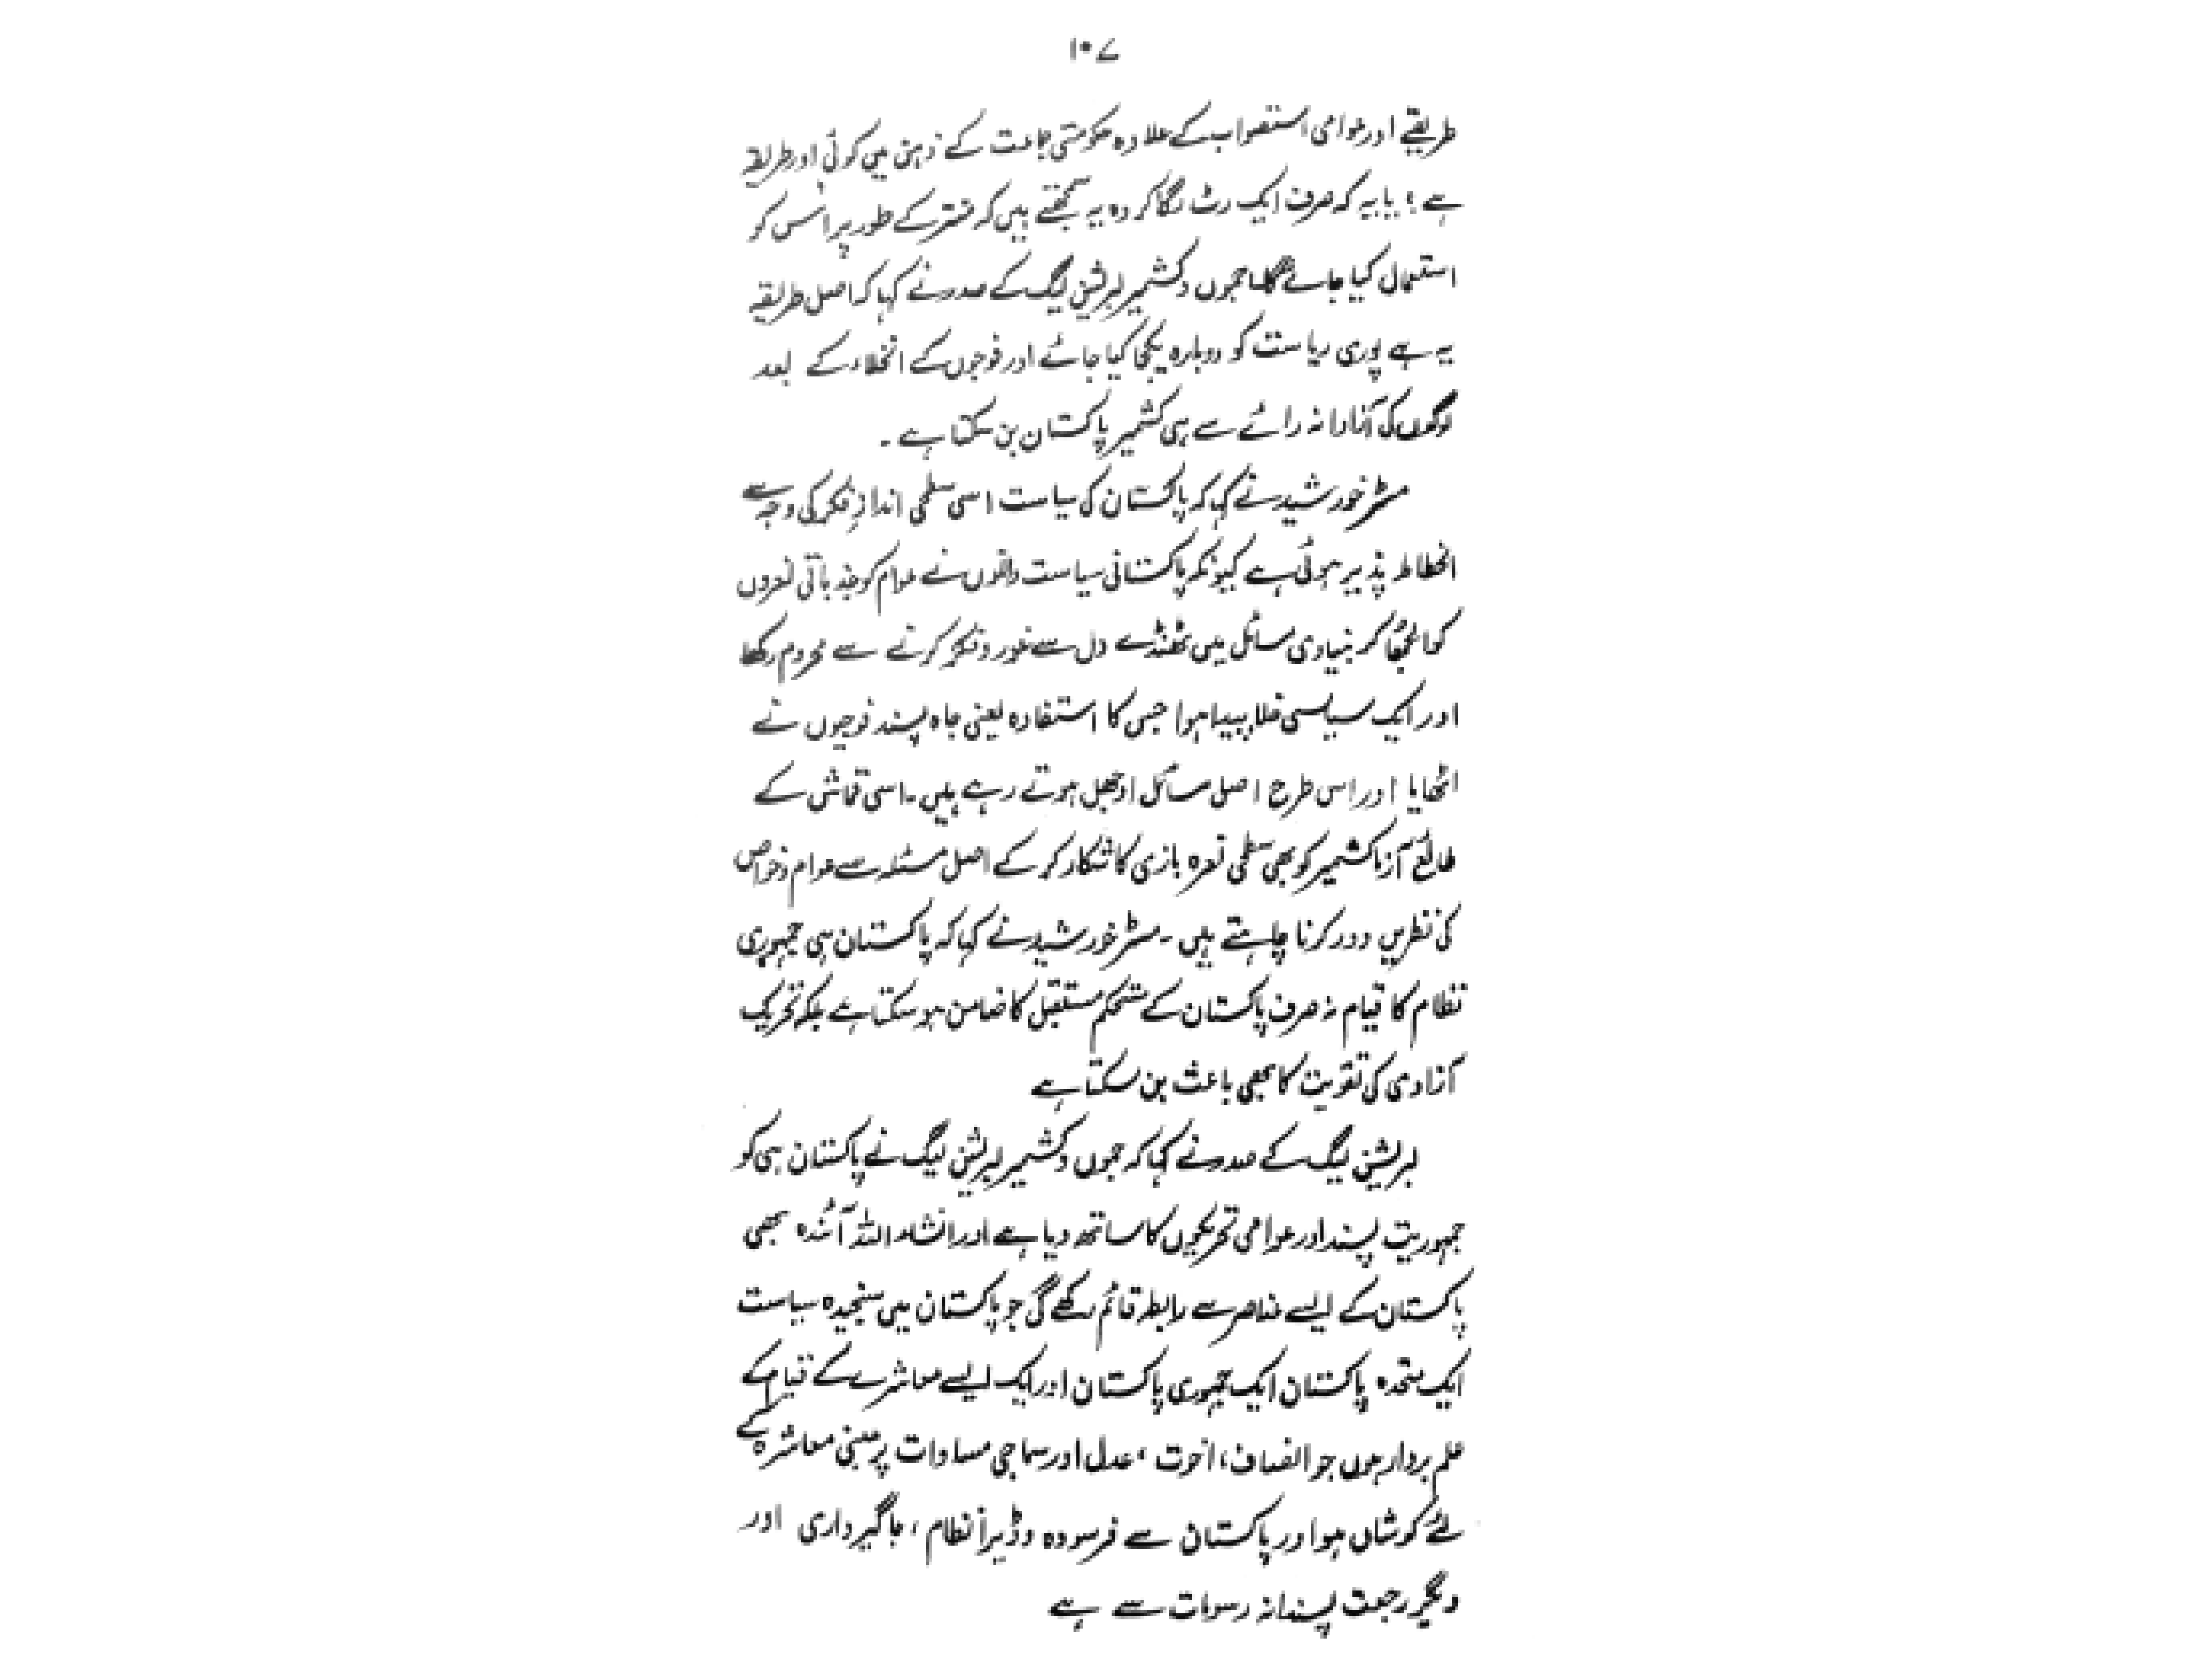 ۱۰۷
طریقے اور عوامی استصواب کے علاوہ حکومتی جماعت کے ذہن میں کوئی اور طریقہ
ہے؟ یا یہ کہ صرف ایک رٹ لگا کر وہ یہ سمجھتے ہیں کہ منتر کے طور پر اس کو
استعمال کیا جائے گا۔ جموں و کشمیر لبریشن لیگ کے صدر نے کہا کہ اصل طریقہ
یہ ہے پوری ریاست کو دوبارہ یکجا کیا جائے اور فوجوں کے انخلاء کے بعد
لوگوں کی آزادانہ رائے سے ہی کشمیر پاکستان بن سکتا ہے۔
مسٹر خورشید نے کہا کہ پاکستان کی سیاست اسی سطحی اندازِ فکر کی وجہ سے
انحطاط پذیر ہوئی ہے کیونکہ پاکستانی سیاست دانوں نے عوام کو جذباتی نعروں
کو الجھا کر بنیادی مسائل میں ٹھنڈے دل سے غور و فکر کرنے سے محروم رکھا
اور ایک سیاسی خلا پیدا ہوا جس کا استفادہ یعنی جاہ پسند فوجیوں نے
اٹھایا اور اس طرح اصل مسائل اوجھل ہوتے رہے ہیں۔ اسی قماش کے
طالع آزما کشمیر کو بھی سطحی نعرہ بازی کا شکار کر کے اصل مسئلہ سے عوام و خواص
کی نظریں دور کرنا چاہتے ہیں۔ مسٹر خورشید نے کہا کہ پاکستان ہی جمہوری
نظام کا قیام نہ صرف پاکستان کے مستحکم مستقبل کا ضامن ہو سکتا ہے بلکہ تحریک
آزادی کی تقویت کا بھی باعث بن سکتا ہے
لبریشن لیگ کے صدر نے کہا کہ جموں و کشمیر لبریشن لیگ نے پاکستان ہی کو
جمہوریت پسند اور عوامی تحریکوں کا ساتھ دیا ہے اور انشاء اللہ آئندہ بھی
پاکستان کے ایسے عناصر سے رابطہ قائم رکھے گی جو پاکستان میں سنجیدہ سیاست
ایک متحدہ پاکستان ایک جمہوری پاکستان اور ایک ایسے معاشرے کے قیام کے
علم بردار ہوں جو انصاف، اخوت، عدل اور سماجی مساوات پر مبنی معاشرہ کے
لئے کوشاں ہو اور پاکستان سے فرسودہ وڈیرا نظام، جاگیرداری اور
دیگر رجعت پسندانہ رسومات سے ہے